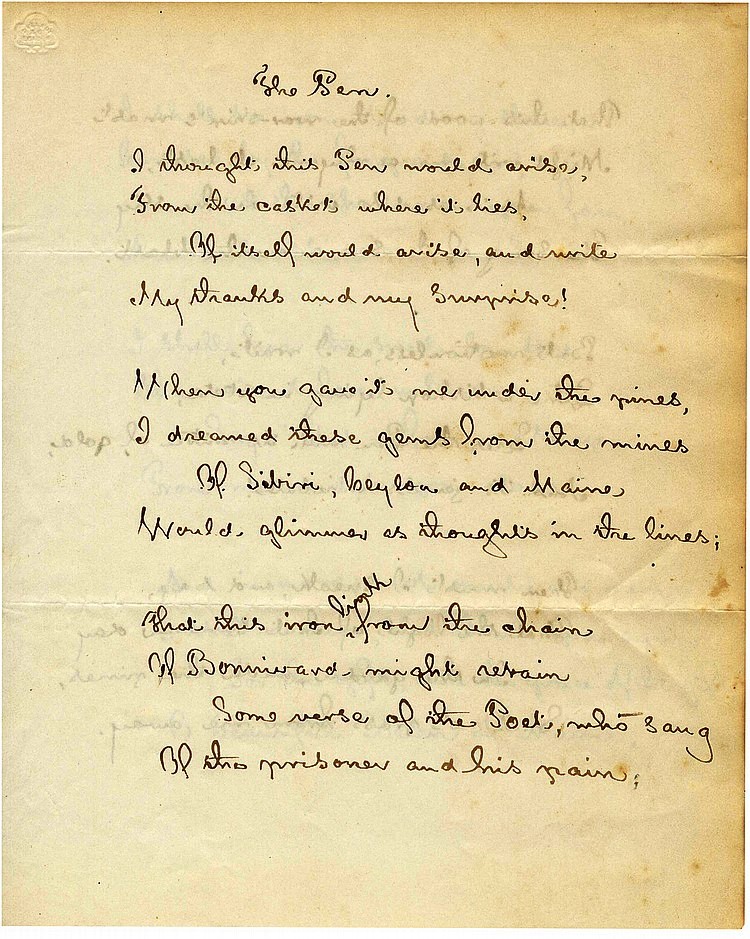 The Pen.
I thought this Pen would arise,
From the casket where it lies,
Of itself would arise, and write
My thanks and my surprise!
When you gave it me under the pines,
I dreamed these gems from the mines
Of Sibiri, Ceylon and Maine
Would glimmer as thoughts in the lines;
That this iron link from the chain
Of Bonnivard might retain
Some verse of the Poet, who sang
Of the prisoner and his pain;